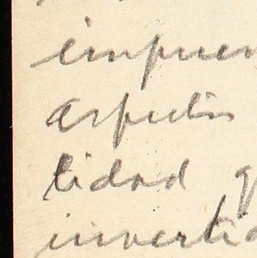 impues
aspectos
tidad q
invertid